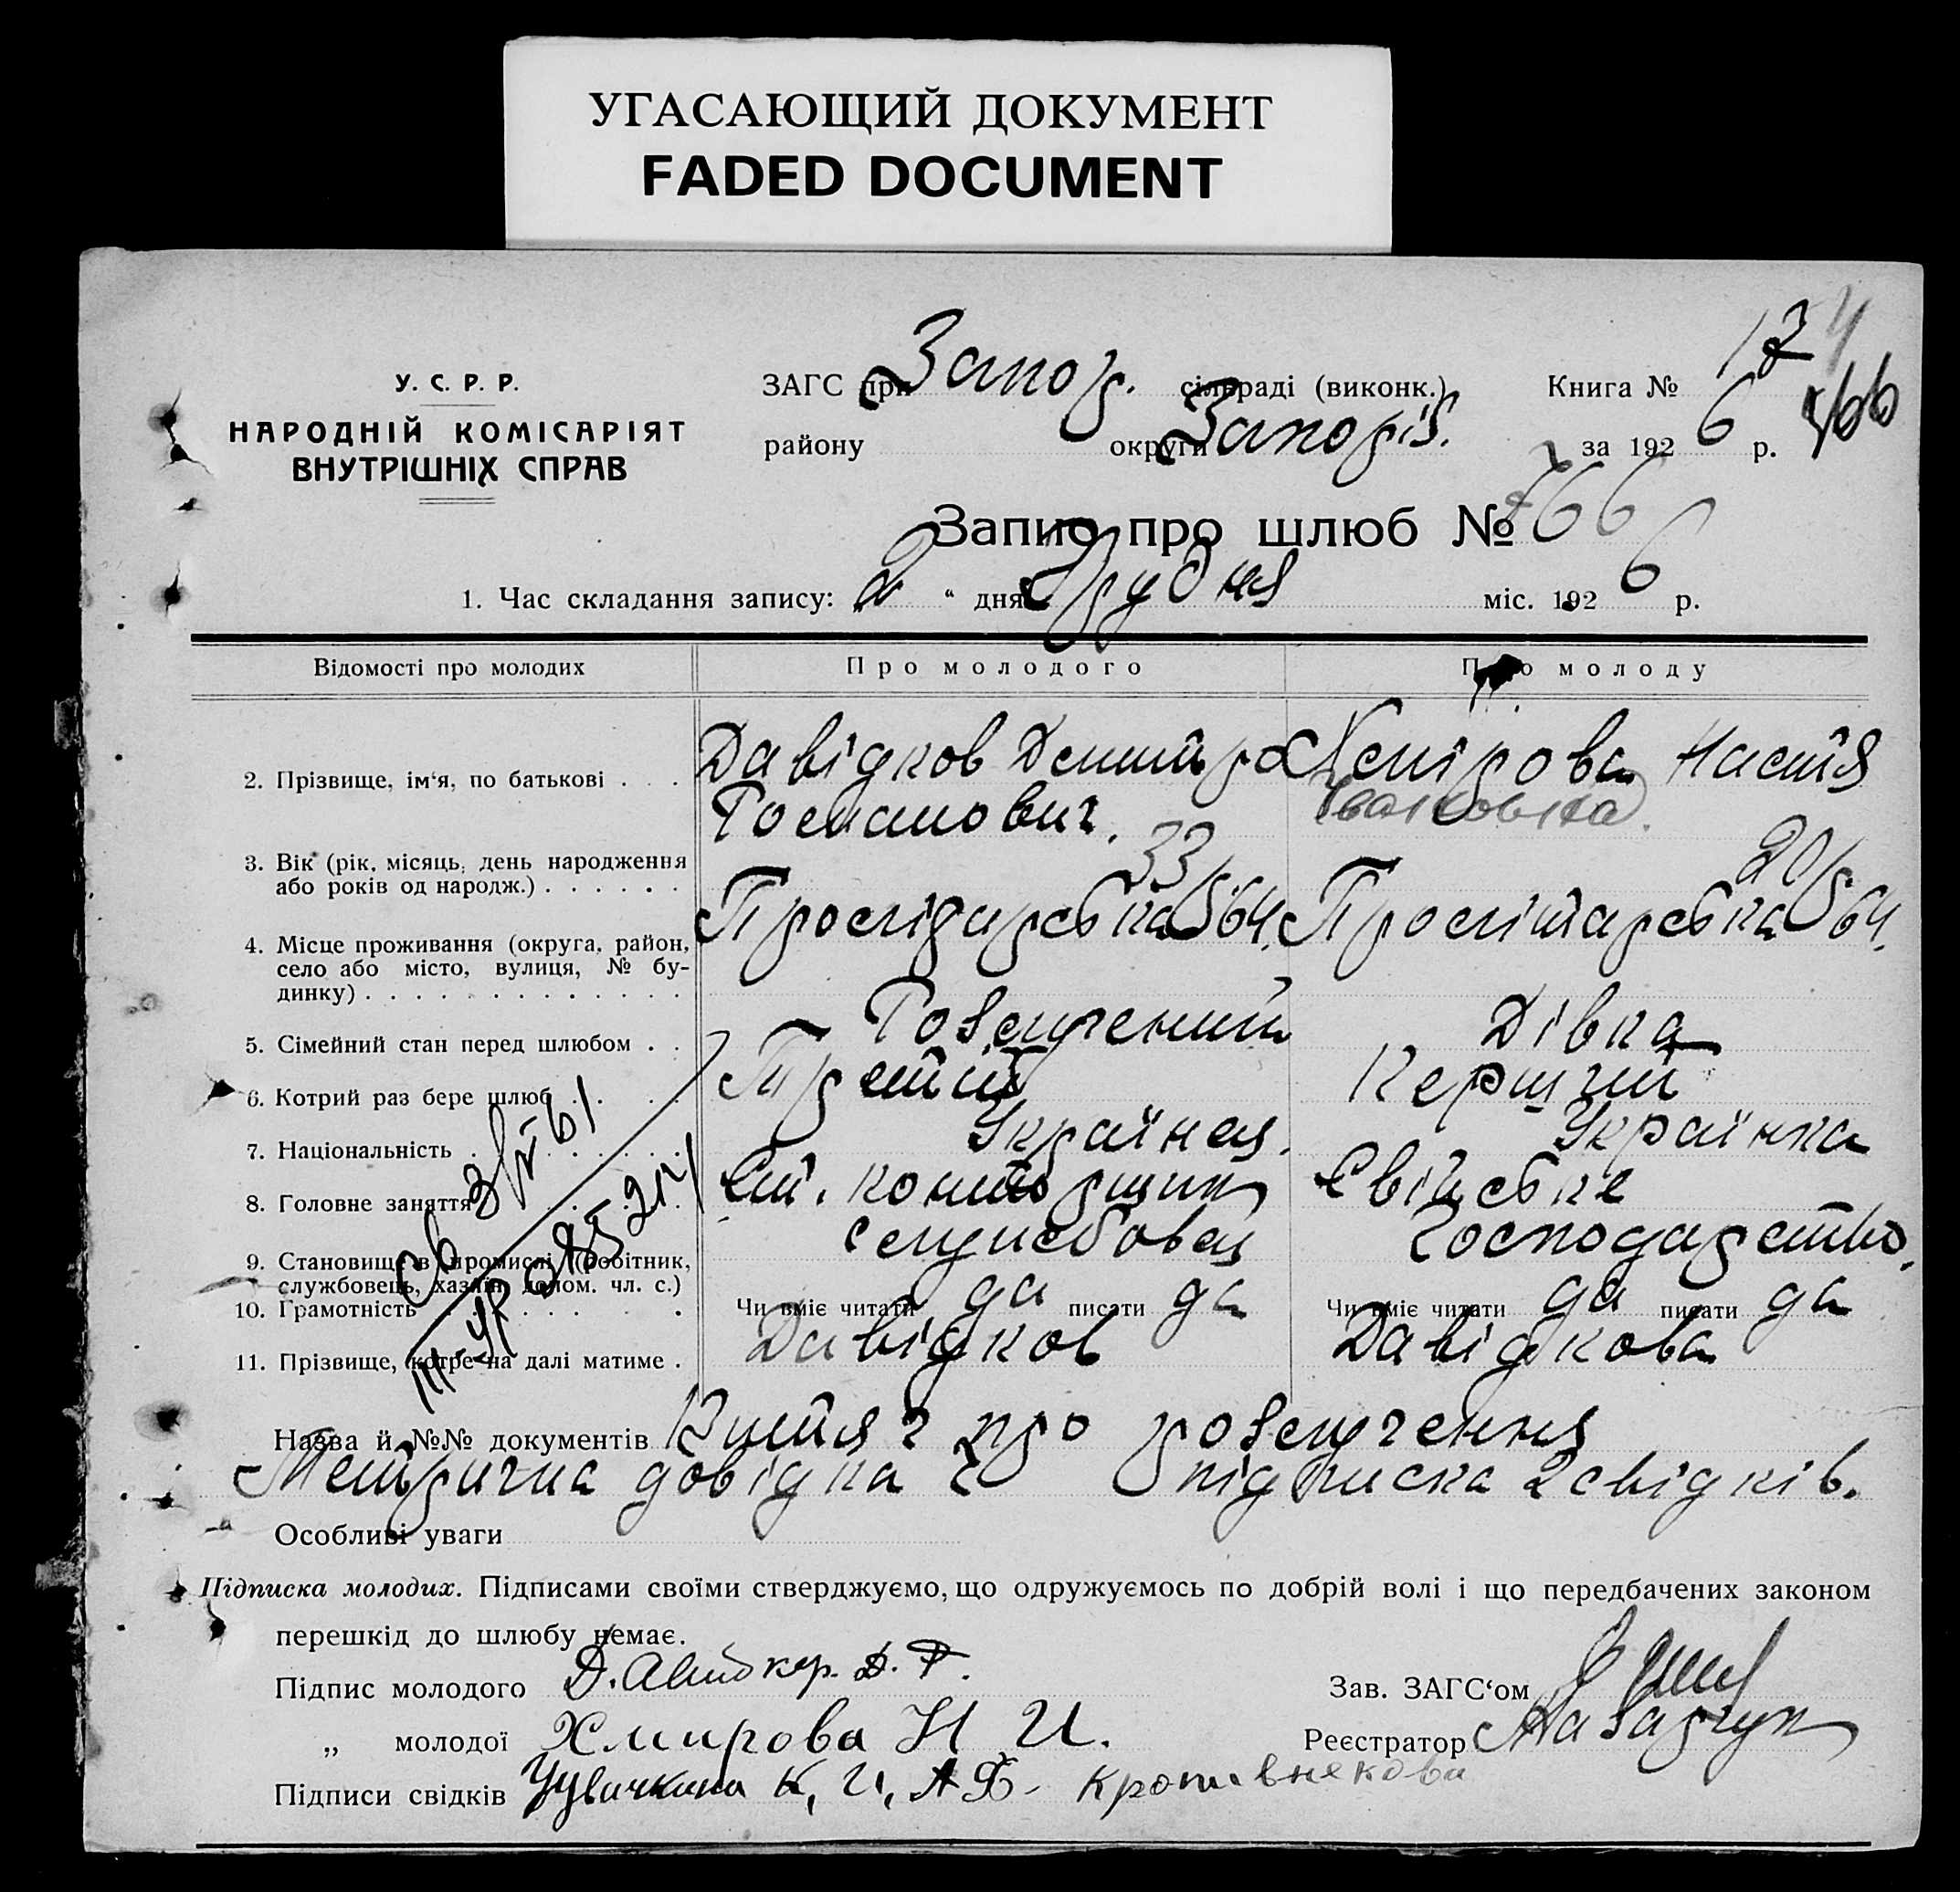 УГАСАЮЩИЙ ДОКУМЕНТ
FADED DOCUMENT
У. С. Р. Р.
НАРОДНІЙ КОМІСАРІЯТ
ВНУТРІШНІХ СПРАВ
ЗАГС при Запор. сільраді (виконк.)
району округи Запоріз.
Книга №
за 1926 р.
Запис про шлюб № 766
1. Час складання запису: „2“ дня Грудня міс. 1926 р.
Відомості про молодих Про молодого Про молоду
2. Прізвище, ім‘я, по батькові . . . Давідков Дмитро Романович. Хмірова Настя Івановна.
3. Вік (рік, місяць, день народження або років од народж.) . . . . . . 33 20
4. Місце проживання (округа, район, село або місто, вулиця, № будинку) . . . . . . . . . . . . 64. 64.
5. Сімейний стан перед шлюбом . . Розлучений Дівка
6. Котрий раз бере шлюб . . . . Третій Перший
7. Національність . . . . . . Українец. Українка
8. Головне заняття . . . . конторщик Свійське
9. Становище в промислі (робітник, службовець, хазяїн, допом. чл. с.) службовец господарство.
10. Грамотність . . . . . . Чи вміє читати да писати да Чи вміє читати да писати да
11. Прізвище, котре на далі матиме . Давідков Давідкова
Назва й №№ документів Витяг про розлучення
Метрична довідка підписка 2 свідків.
Особливі уваги
Підписка молодих. Підписами своїми стверджуємо, що одружуємось по добрій волі і що передбачених законом
перешкід до шлюбу немає.
Підпис молодого
Зав. ЗАГС‘ом
„ молодої Хмирова Н И.
Реєстратор Назарчук
Підписи свідків К, И, А Ф- Кропивнекова